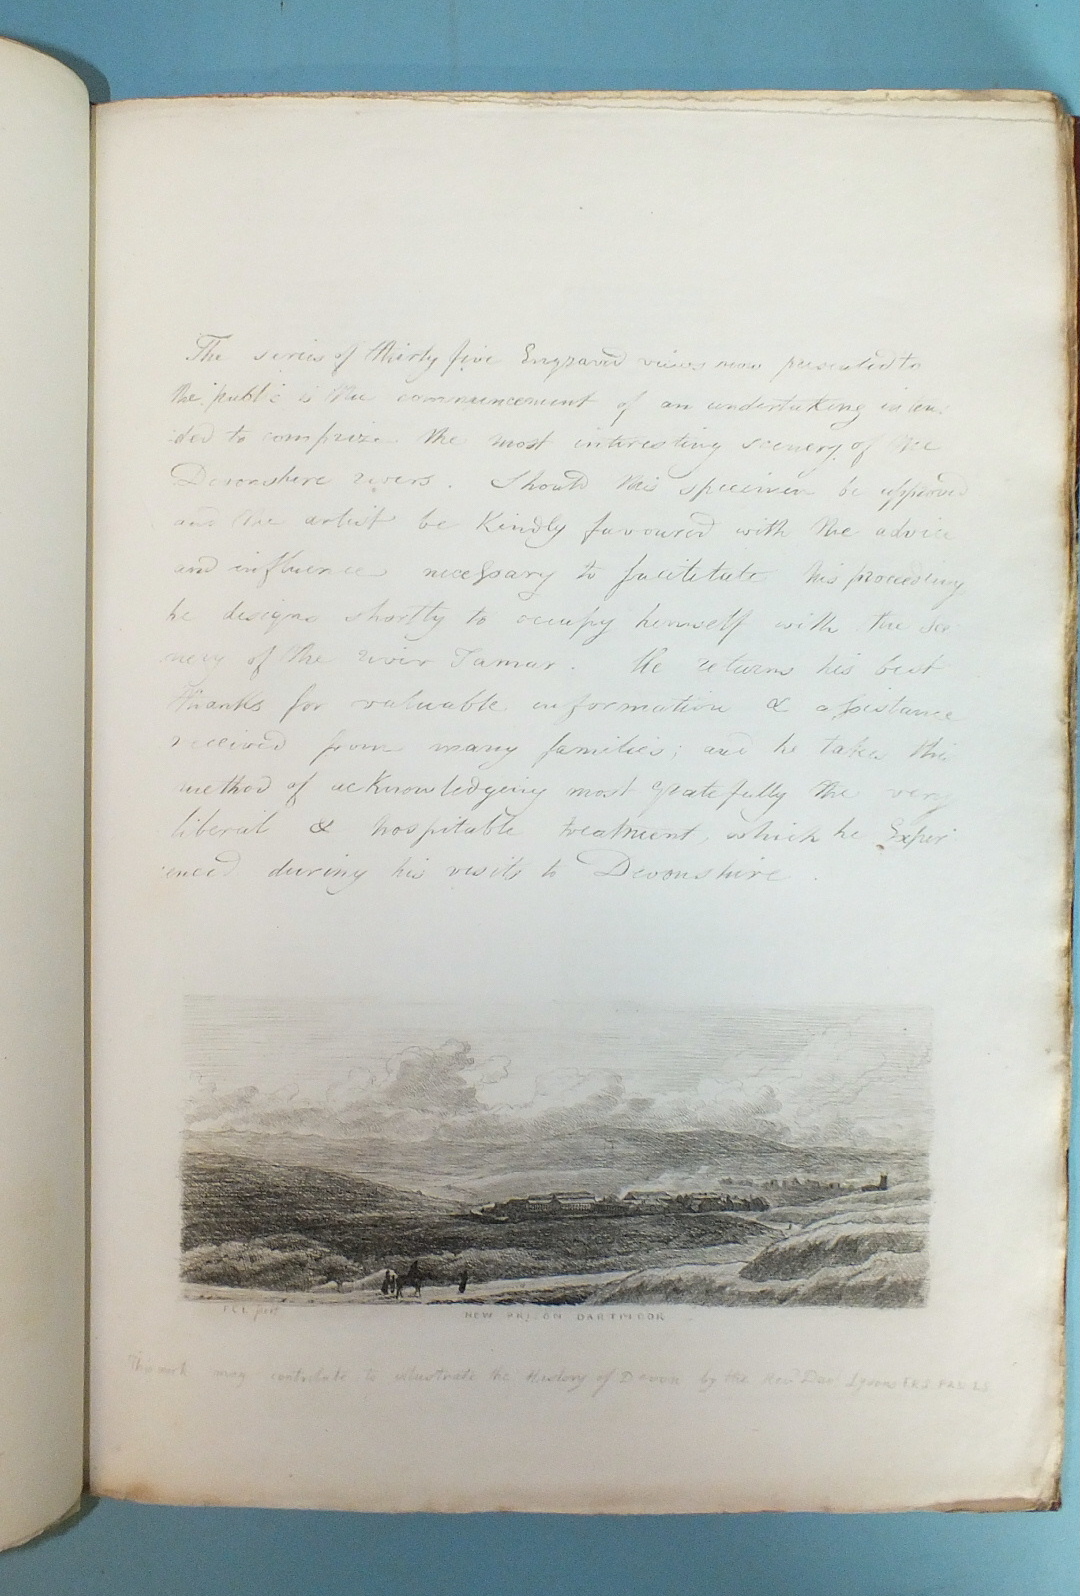 The series of thirty five Engraved views now presented to
the public is the commencement of an undertaking inten
ded to comprize the most interesting scenery of the
Devonshire rivers. Should this specimen be approved
and the artist be Kindly favoured with the advice
and influence necessary to facilitate his proceeding
he designs shortly to occupy himself with the sce
nery of the river Tamar. He returns his best
thanks for valuable information & assistance
received from many families; and he takes this
method of acKnowledging most gratefully the very
liberal & hospitable treatment, which he Exper
ienced during his visits to Devonshire.
F C L fecit
NEW PRISON DARTMOOR
This work may contribute to illustrate the History of Devon by the Revd Dan Lysons F.R.S. F.A.S. L.S